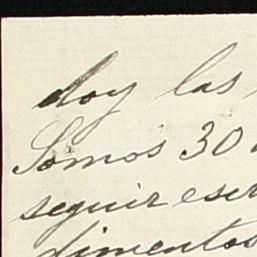 doy las
Somos 30
seguir escr
dimentos